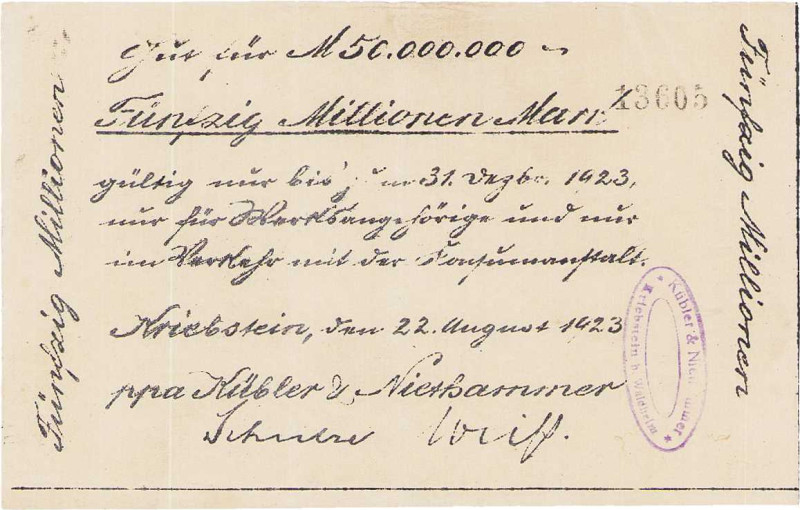 Gut für M 50.000.000 –
Fünfzig Millionen Mark
13605
gültig nur bis zum 31. Dezbr. 1923,
nur für Werksangehörige und nur
im Verkehr mit der Konsumanstalt.
Kriebstein, den 22. August 1923
ppa Kübler & Niethammer
Fünfzig Millionen
Fünfzig Millionen
* Kübler & Niethammer *
Kriebstein b. Waldheim